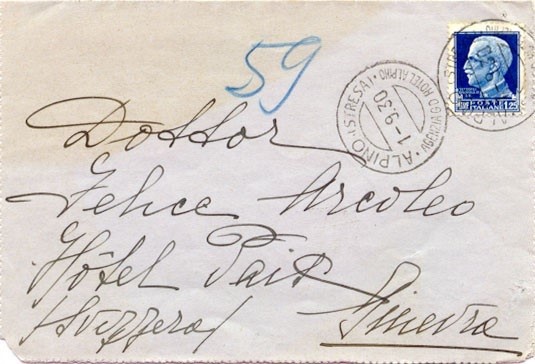 59
ALPINO (STRESA)
AGENZIA GRAND HOTEL ALPINO
1-9.30
POSTE
ITALIANE 1,25
Dottor
Felice Arcoleo
Hôtel Paix
(Svizzera) Ginevra